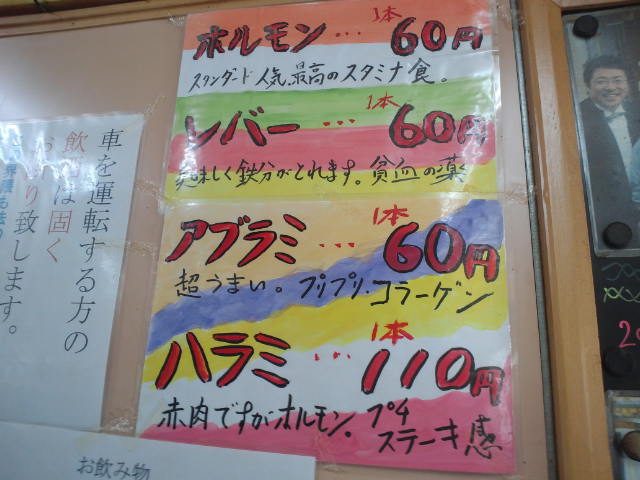 ホルモン… 1本 60円
スタンダード 人気、最高のスタミナ食。
レバー… 1本 60円
美味しく鉄分がとれます。貧血の薬
アブラミ… 1本 60円
超うまい。プリプリ・コラーゲン
ハラミ… 1本 110円
赤肉ですがホルモン。プチ
ステーキ感
車を運転する方の
飲酒は固く
お断り致します。
お飲み物